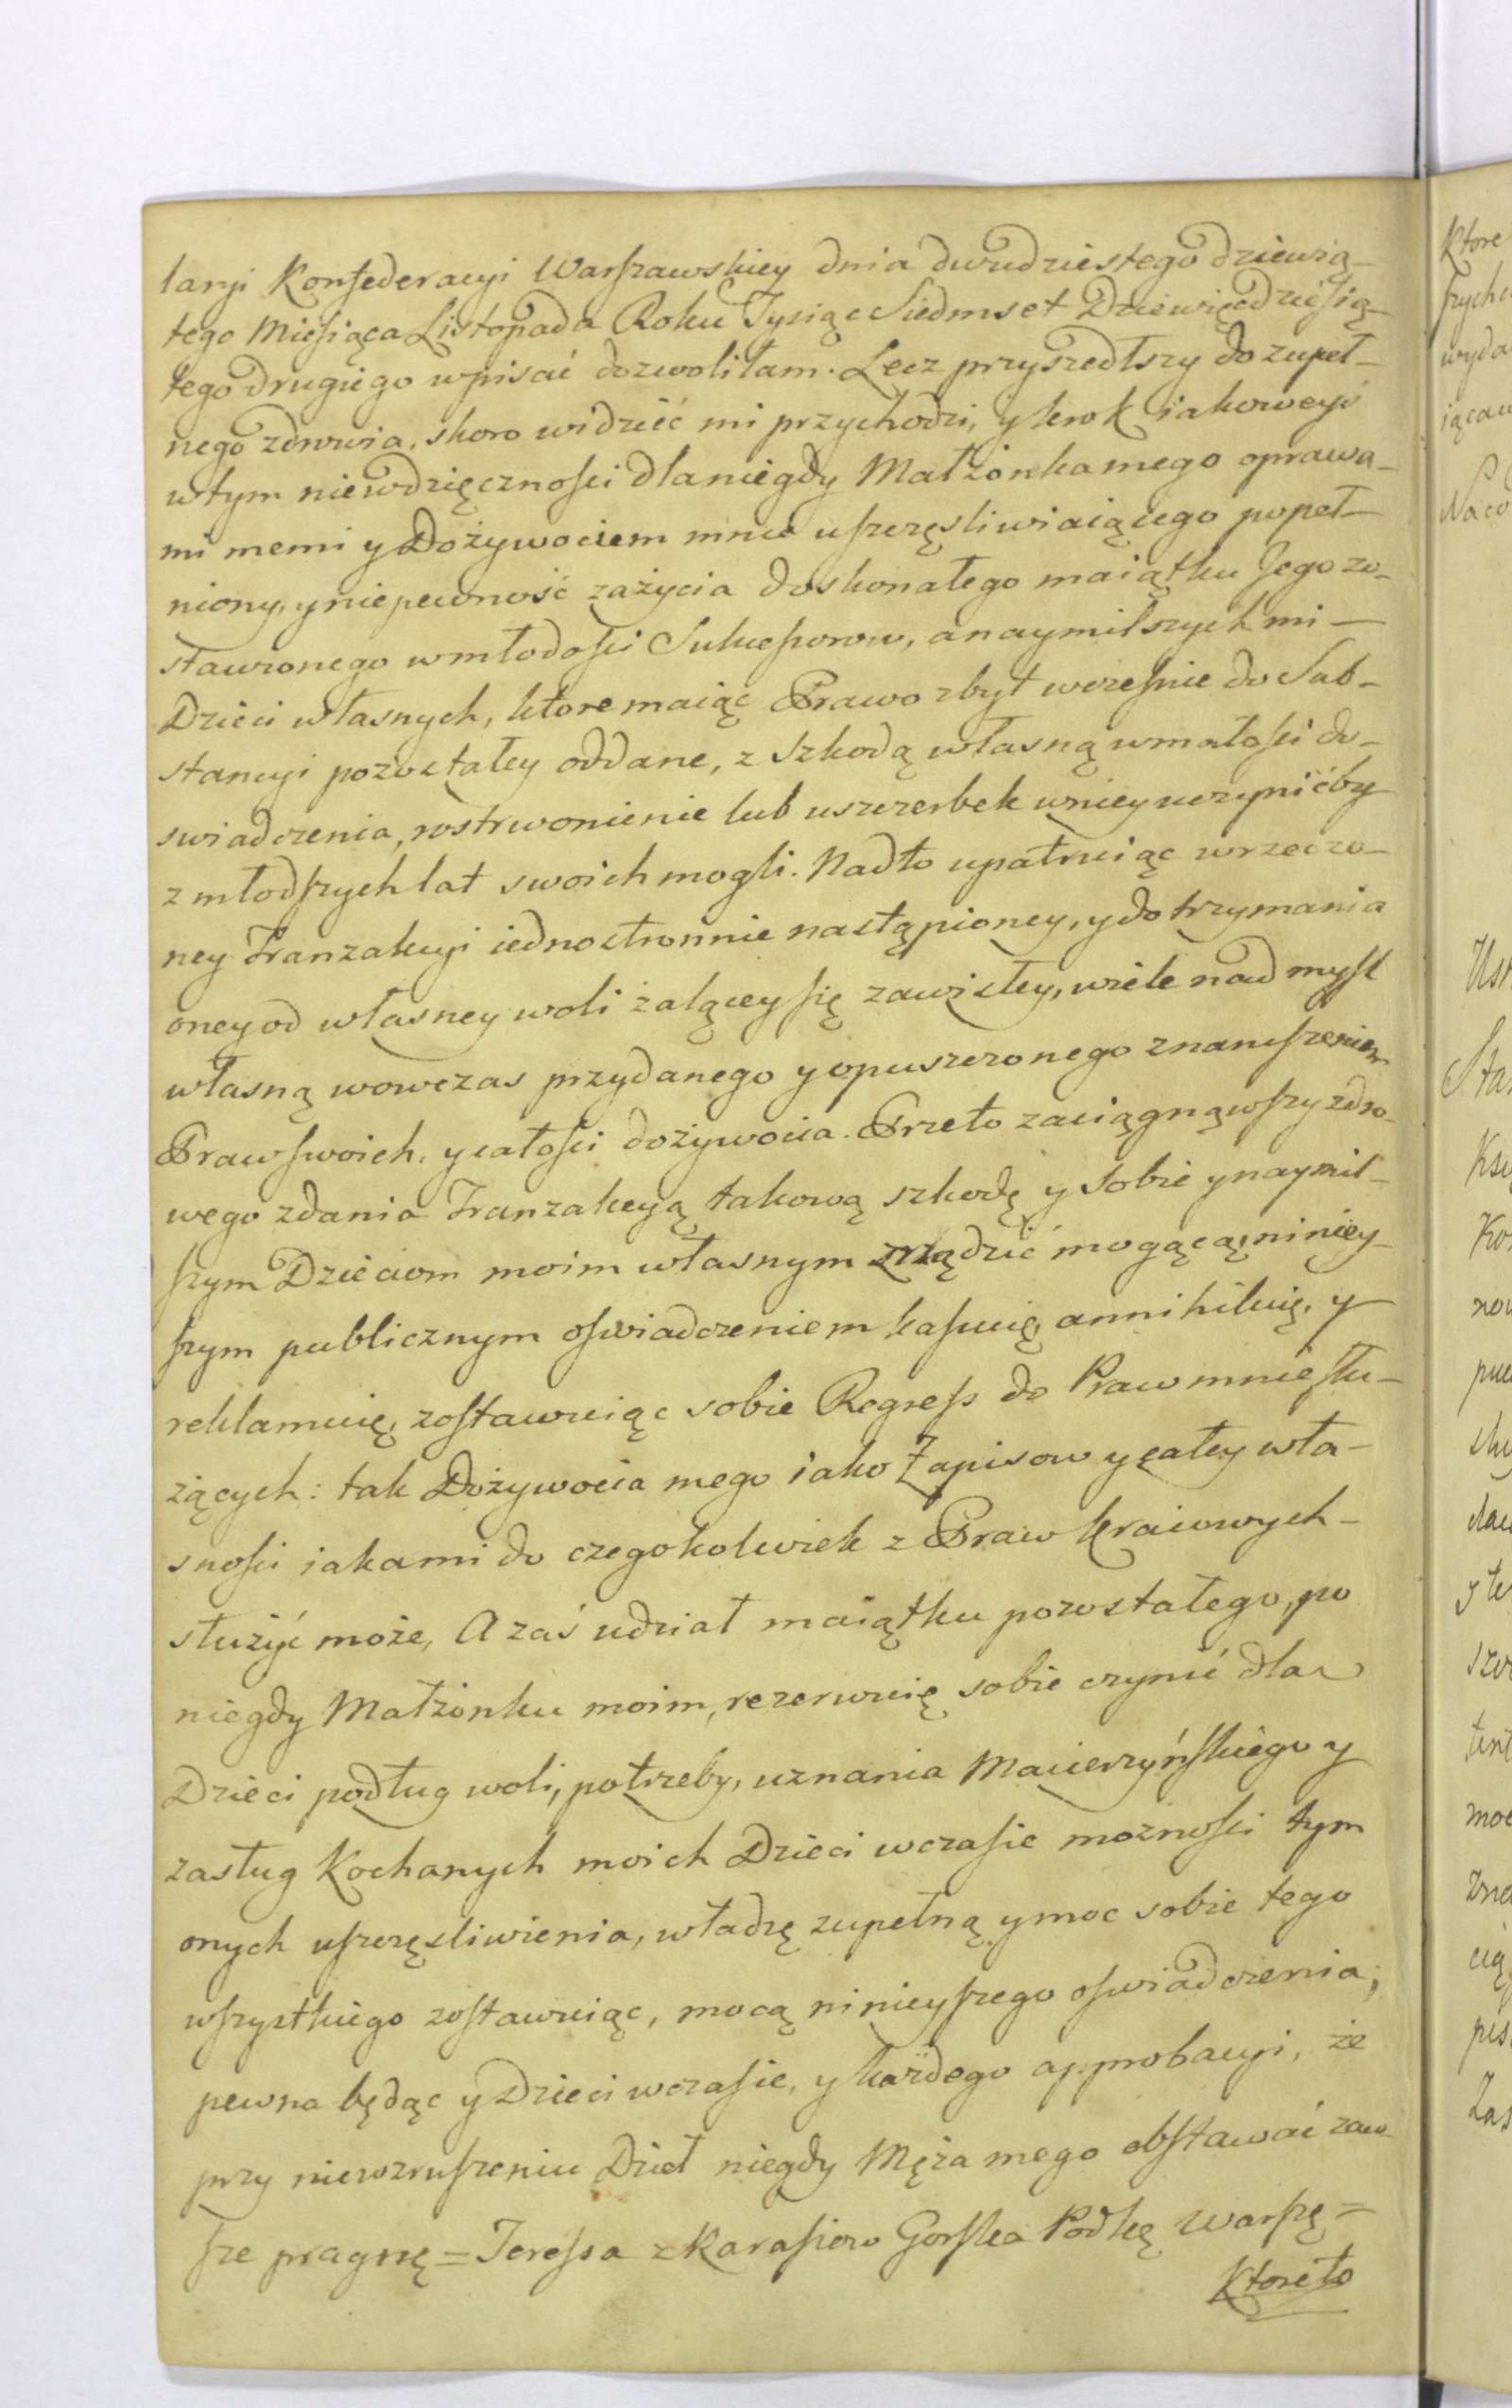 laryi Konfederacyi Warszawskiey dnia dwudziestego dziewią-
tego Miesiąca Listopada Roku Tysiąc Siedmset Dziewięcdziesią-
tego drugiego wpisać dozwoliłam. Lecz przyszedłszy do zupeł-
nego zdrowia, skoro widzieć mi przychodzi, y krok iakoweyś
wtym niewdzięczności dla niegdy Małżonka mego oprawa-
mi memi y Dożywociem mnie uszczęsliwiaiącego popeł-
niony, y niepewność zażycia doskonałego maiątku Jego zo-
stawionego w młodości Sukcessorow, a naymilszych mi -
Dzieci własnych, ktore maiąc Prawo zbyt wcześnie do Sub-
stancyi pozostałey oddane, z szkodą własną w małości do-
swiadczenia, rostrwonienie lub uszczerbek wniey uczynićby
z młodszych lat swoich mogli. Nadto upatruiąc wrzeczo-
ney Tranzakcyi iednostronnie nastąpioney, y do trzymania
oney od własney woli żalącey się zawisłey, wiele nad mysl
własną wowczas przydanego y opuszczonego znaruszeniem
Praw swoich, y całości dożywocia. Przeto zaciągnąwszy zdro-
wego zdania Tranzakcyą takową szkodę y sobie y naymil-
szym Dzieciom moim własnym zrządzić mogącą, niniey-
szym publicznym oświadczeniem kassuię, annihiluię, y
reklamuię, zostawuiąc sobie Regress do Praw mnie słu-
żących: tak Dożywocia mego iako Zapisow y całey wła-
sności iaka mi do czegokolwiek z Praw kraiowych -
służyć może, A zaś udział maiątku pozostałego, po
niegdy Małżonku moim, rezerwuię sobie czynić dla
Dzieci podług woli, potrzeby, uznania Macierzyńskiego y
zasług Kochanych moich Dzieci wczasie możności tym
onych uszczęsliwienia, władzę zupełną y moc sobie tego
wszystkiego zostawuiąc, mocą ninieyszego oświadczenia;
pewna będąc y Dzieci wczasie, y każdego approbacyi, że
przy niewzruszeniu Dzieł niegdy Męża mego obstawać zaw-
sze pragnę = Teressa z Karasiow Gorska Podkę Warszę =
Ktore to
Ktore
wyda